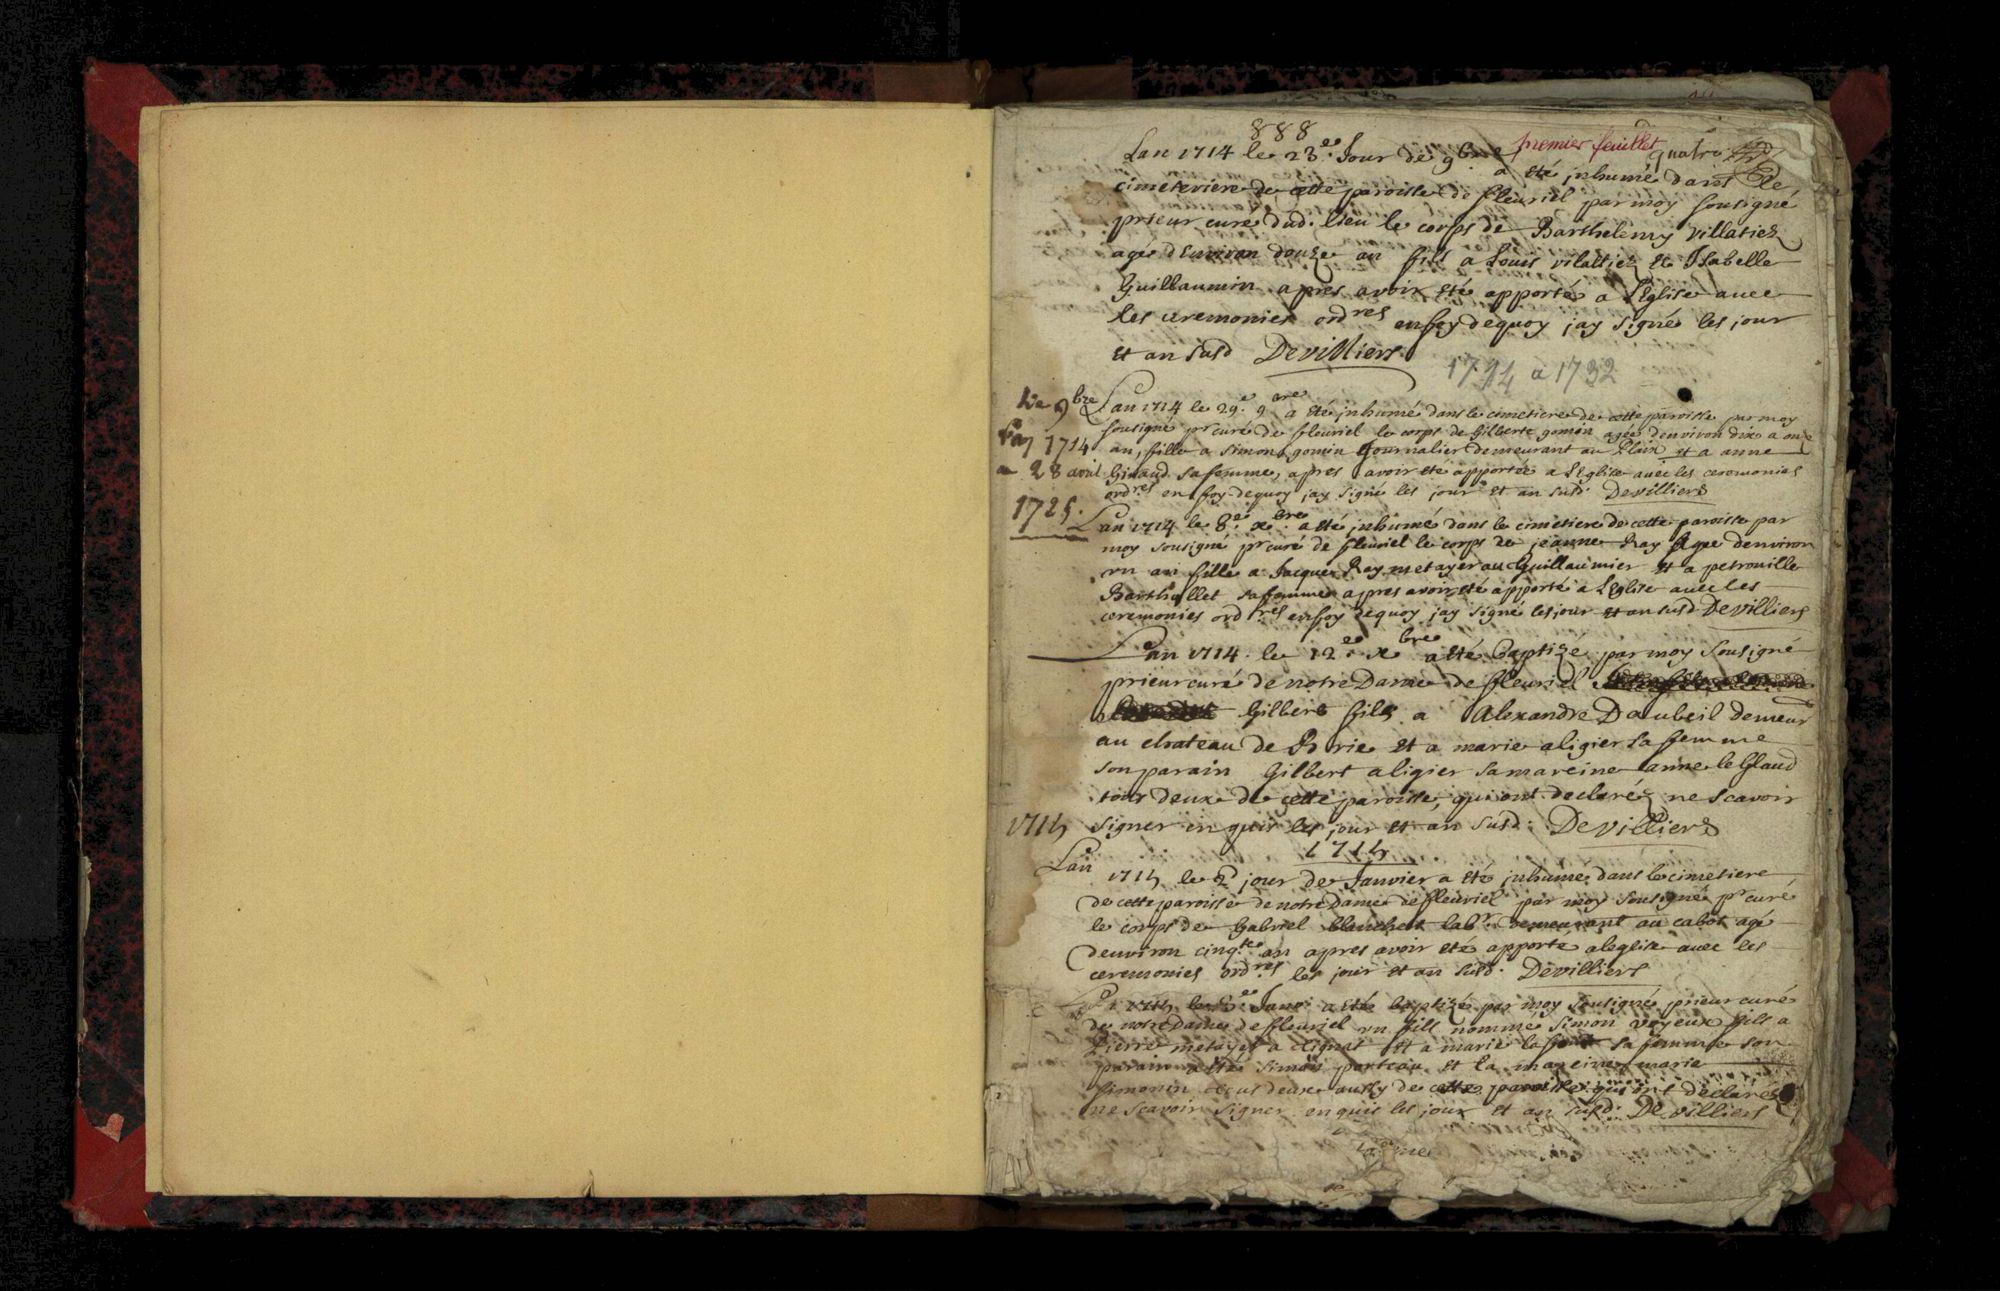 888
premier feuillet
quatre
Lan 1714 le 23e. Jour de 9bre a eté inhumé dans Le
cimeteriere de cette paroisse de fleuriel par moy sousigné
prieur curé dud. lieu le corps de Barthelemy Villatiez
agée d'Environ douze an fils a Louis vilattiez et Isabelle
Guillaumin apres avoir eté apporté a l'Eglise avec
les ceremonies ordres en foy de quoy jay signé les jour
et an susd Devilliers
1714 a 1732
Lan 1714 le 29e. 9bre a eté inhumé dans le cimetiere de cette paroisse par moy
sousigné pr curé de fleuriel le corps de Gilberte gomin agée denviron dix a onze
an, fille a Simon gomin Journalier demeurant au Plaix et a anne
Giraud sa femme, apres avoir eté apportée a l'Eglise avec les ceremonies
ordres en foy de quoy jay signé les jour et an susd. Devilliers
9bre
1714
a 28 avril
1725.
Lan 1714 le 8e. xbre a eté inhumé dans le cimetiere de cette paroisse par
moy sousigné pr curé de fleuriel le corps de jeanne Ray Agee denviron
vn an fille a Jacques Ray metayer au Guillaumier et a petrouille
Barthollet sa femme apres avoir eté apporté a l'Eglise avec les
ceremonies ordres en foy de quoy jay signé les jour et an susd Devilliers
Lan 1714. le 12e. xbre a eté Baptizé par moy Sousigné
prieur curé de notre Dame de fleuriel
Gilbert fils a Alexandre Daubeil demeur
au chateau de Brie et a marie aligier sa femme
son parain Gilbert aligier sa mareine anne le Glaud
tous deux de cette paroisse, qui ont declarez ne scavoir
signer en quis les jour et an susd. Devilliers
1715
1715
Lan 1715 le 2d jour de Janvier a eté inhumé dans le cimetiere
de cette paroisse de notre Dame de fleuriel par moy Sousigné pr curé
le corps de Gabriel blanchet labr. Demeurant au cabot agé
denviron cinqte an apres avoir eté apporté a leglise avec les
ceremonies ordres les jour et an susd. Devilliers
Lan 1715 le Janv. a eté baptizé par moy Sousigné prieur curé
de notre Dame de fleuriel vn fils nommé Simon voyeux fils a
pierre metayer a clignat et a marie sa femme son
parain a eté Simon parteau et la mareine marie
Simonin tous deux aussy de cette paroisse qui ont declarés
ne scavoir signer enquis les jour et an susd. Devilliers